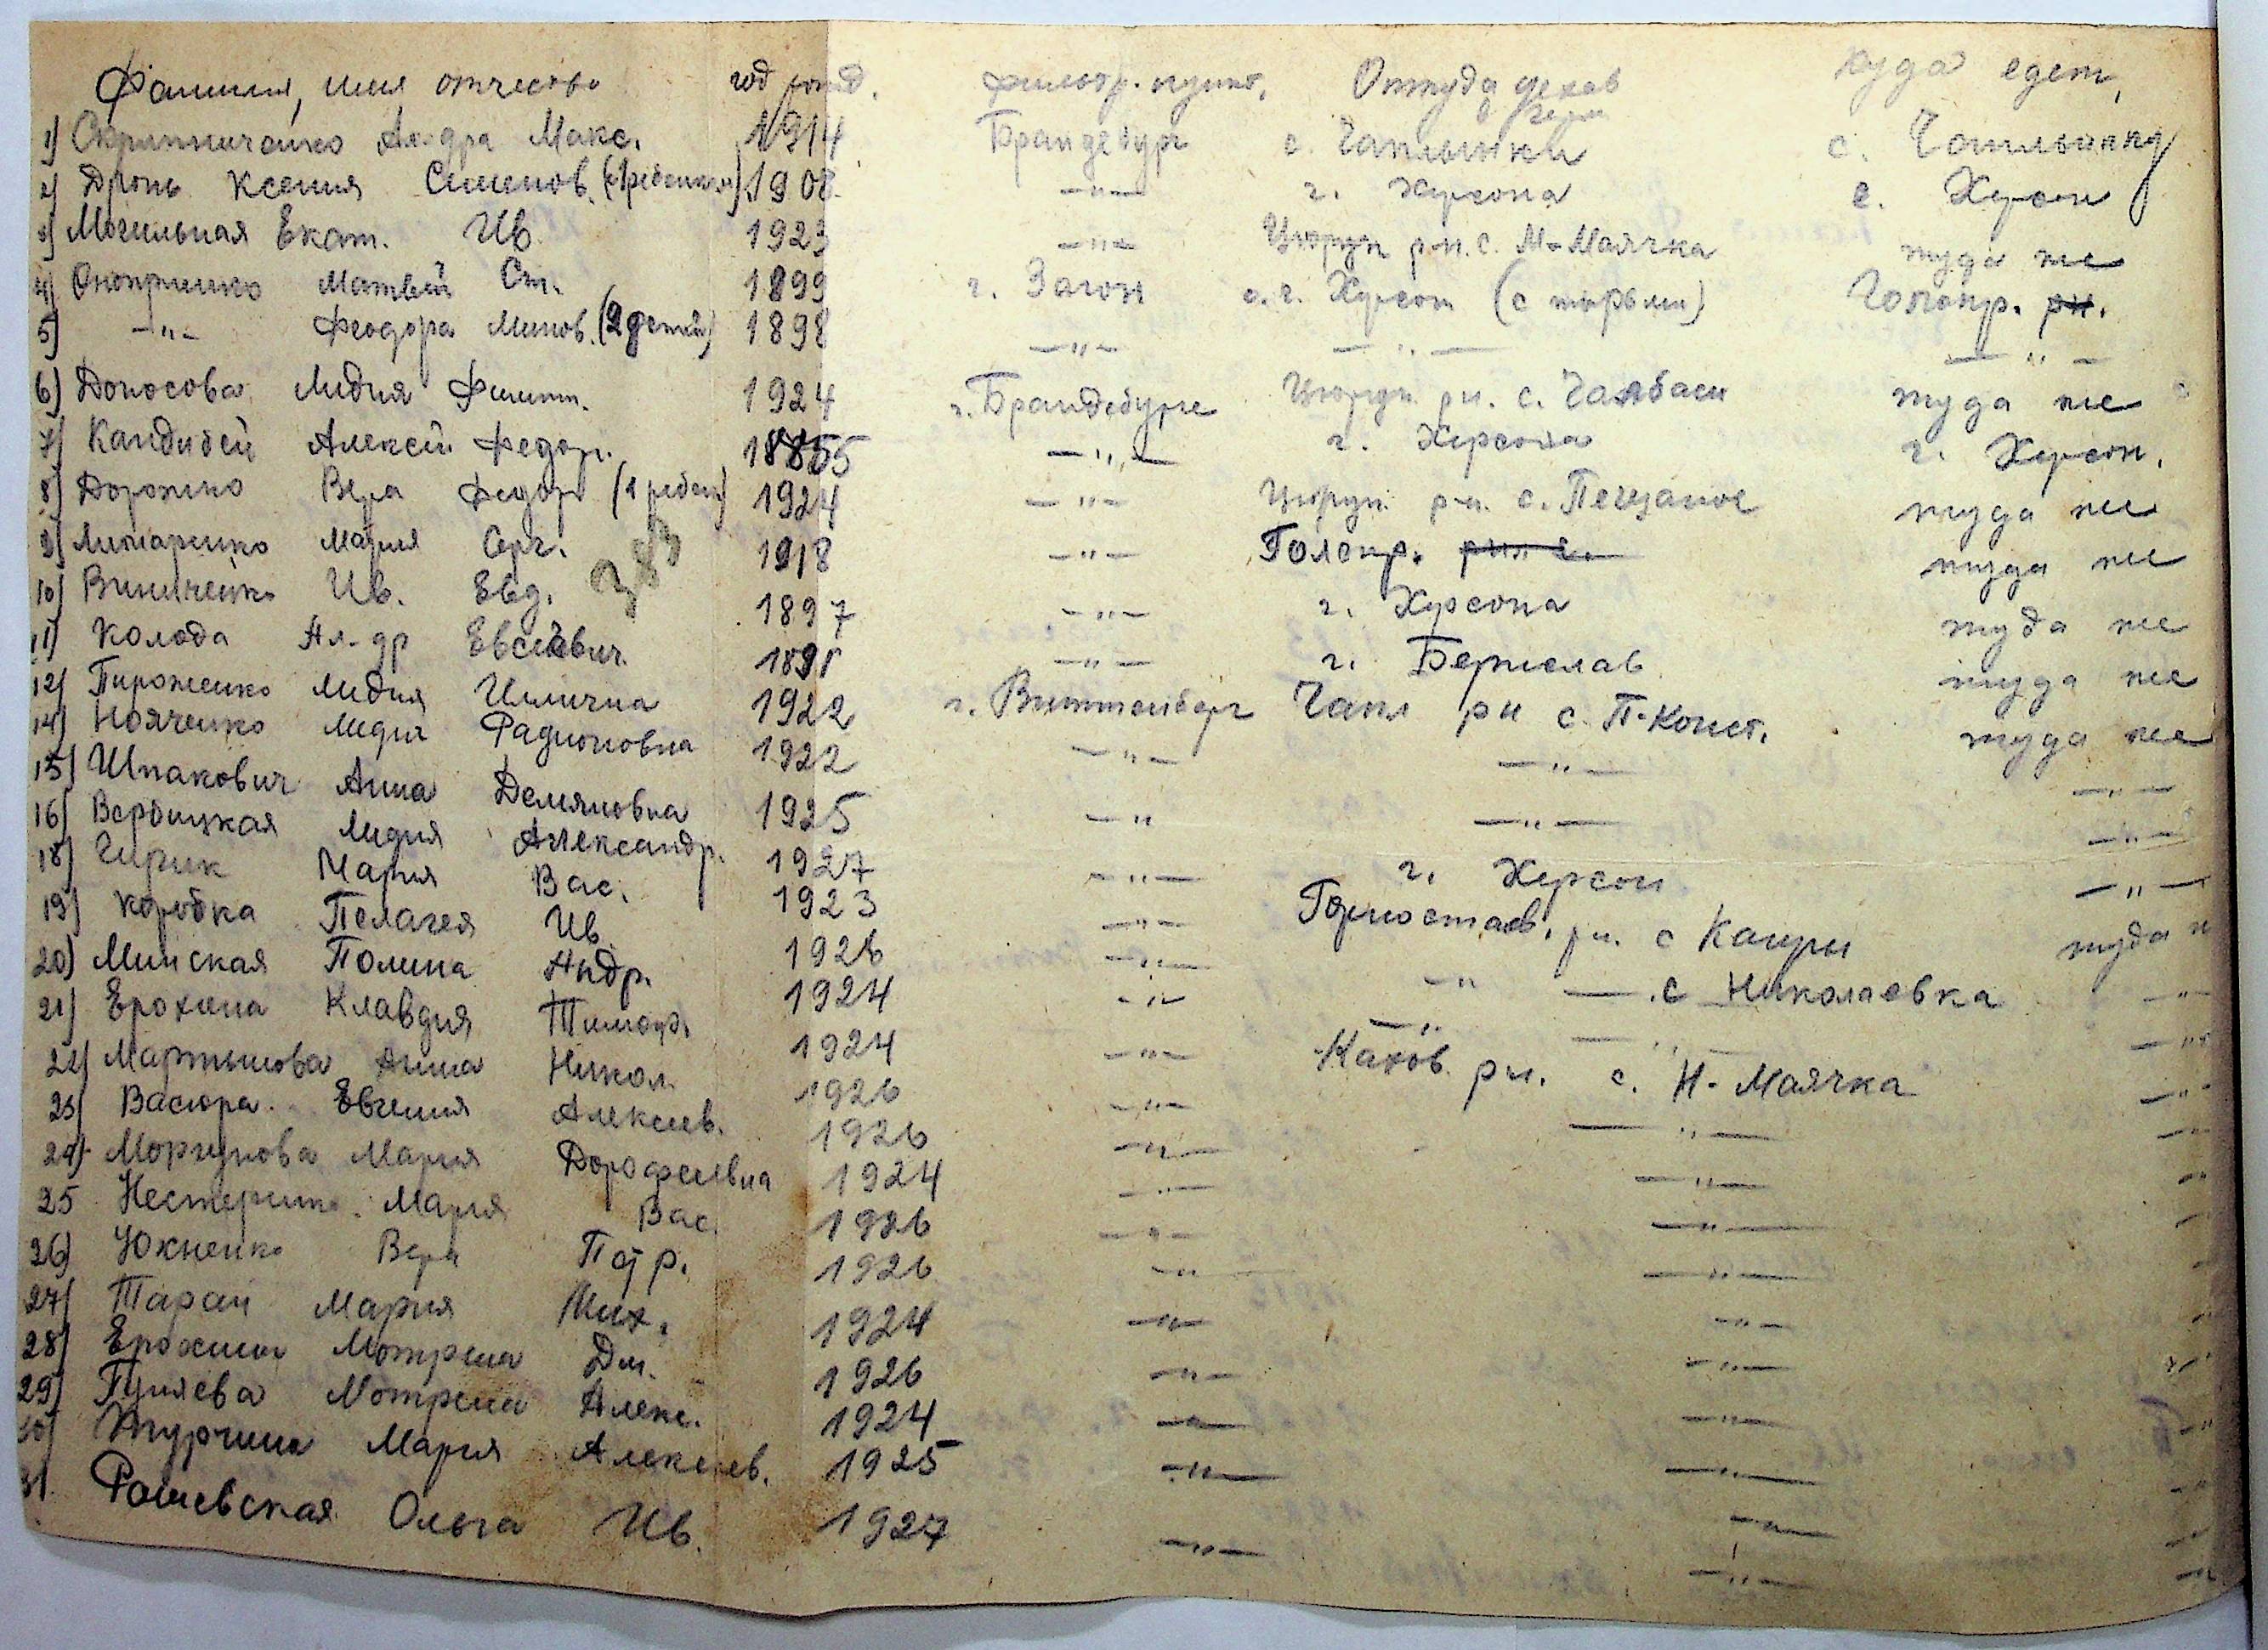 Фамилия, имя отчество год рожд. фильтр. пункт, Откуда уехав куда едет,
1) Скрипниченко Ал-дра Макс. 1914 Бранденбург с. Чаплынки с. Чаплынку
2) Дронь Ксения Семенов. (с 1 ребенком) 1908 —"— г. Херсона г. Херсон
3) Могильная Екат. Ив. 1923 —"— Цюруп р-н. с. М-Маячка туда же
4) Оноприенко Матвей Ст. 1899 г. Загон г. Херсон Голопр. рн.
5) —"— Феодора Минов. (2 детей) 1898 —"— —"— —"—
6) Доносова Лидия Филипп. 1924 г. Бранденбург Цюруп. рн. с. Чалбаси туда же
7) Кандибей Алексей Федор. —"— г. Херсона г. Херсон.
8) Дорошко Вера Федор (1 ребен) 1924 —"— Цюруп. р-н. с. Песчаное туда же
9) Литаренко Мария Серг. 1918 —"— Голопр. туда же
383
10) Винниченко Ив. Евд. 1897 —"— г. Херсона туда же
11) Колода Ал-др Евсеевич. —"— г. Берислав туда же
12) Пироженко Лидия Ильична 1922 г. Виттенберг Чапл рн с. П-Конст. туда же
14) Нояченко Лидия Радионовна 1922 —"— —"— —"—
15) Шпакович Анна Демяновна 1925 —"— —"— —"—
16) Вербицкая Лидия Александр. 1927 —"— г. Херсон —"—
18) Чирик Мария Вас. 1923 —"— Горностаев. рн. с Каиры туда
19) Коробка Пелагея Ив. 1926 —"— —"— с Николаевка —"—
20) Минская Полина Андр. 1924 —"— —"— —"— —"—
21) Ерохина Клавдия Тимоф. 1924 —"— Кахов. рн. с. Н-Маячка —"—
22) Мартынова Анна Никол. 1926 —"— —"— —"—
23) Васюра Евгения Алексеев. 1926 —"— —"— —"—
24) Моргунова Мария Дорофеевна 1924 —"— —"— —"—
25 Нестеренко Мария Вас. 1926 —"— —"— —"—
26) Юхненко Вера Петр. 1926 —"— —"— —"—
27) Таран Мария Мих. 1924 —"— —"— —"—
28) Ерохина Мотрена Дм. 1926 —"— —"— —"—
29) Гуляева Мотрена Алекс. 1924 —"— —"— —"—
30) Турчина Мария Алексеев. 1925 —"— —"— —"—
31. Рашевская Ольга Ив. 1927 —"— —"— —"—